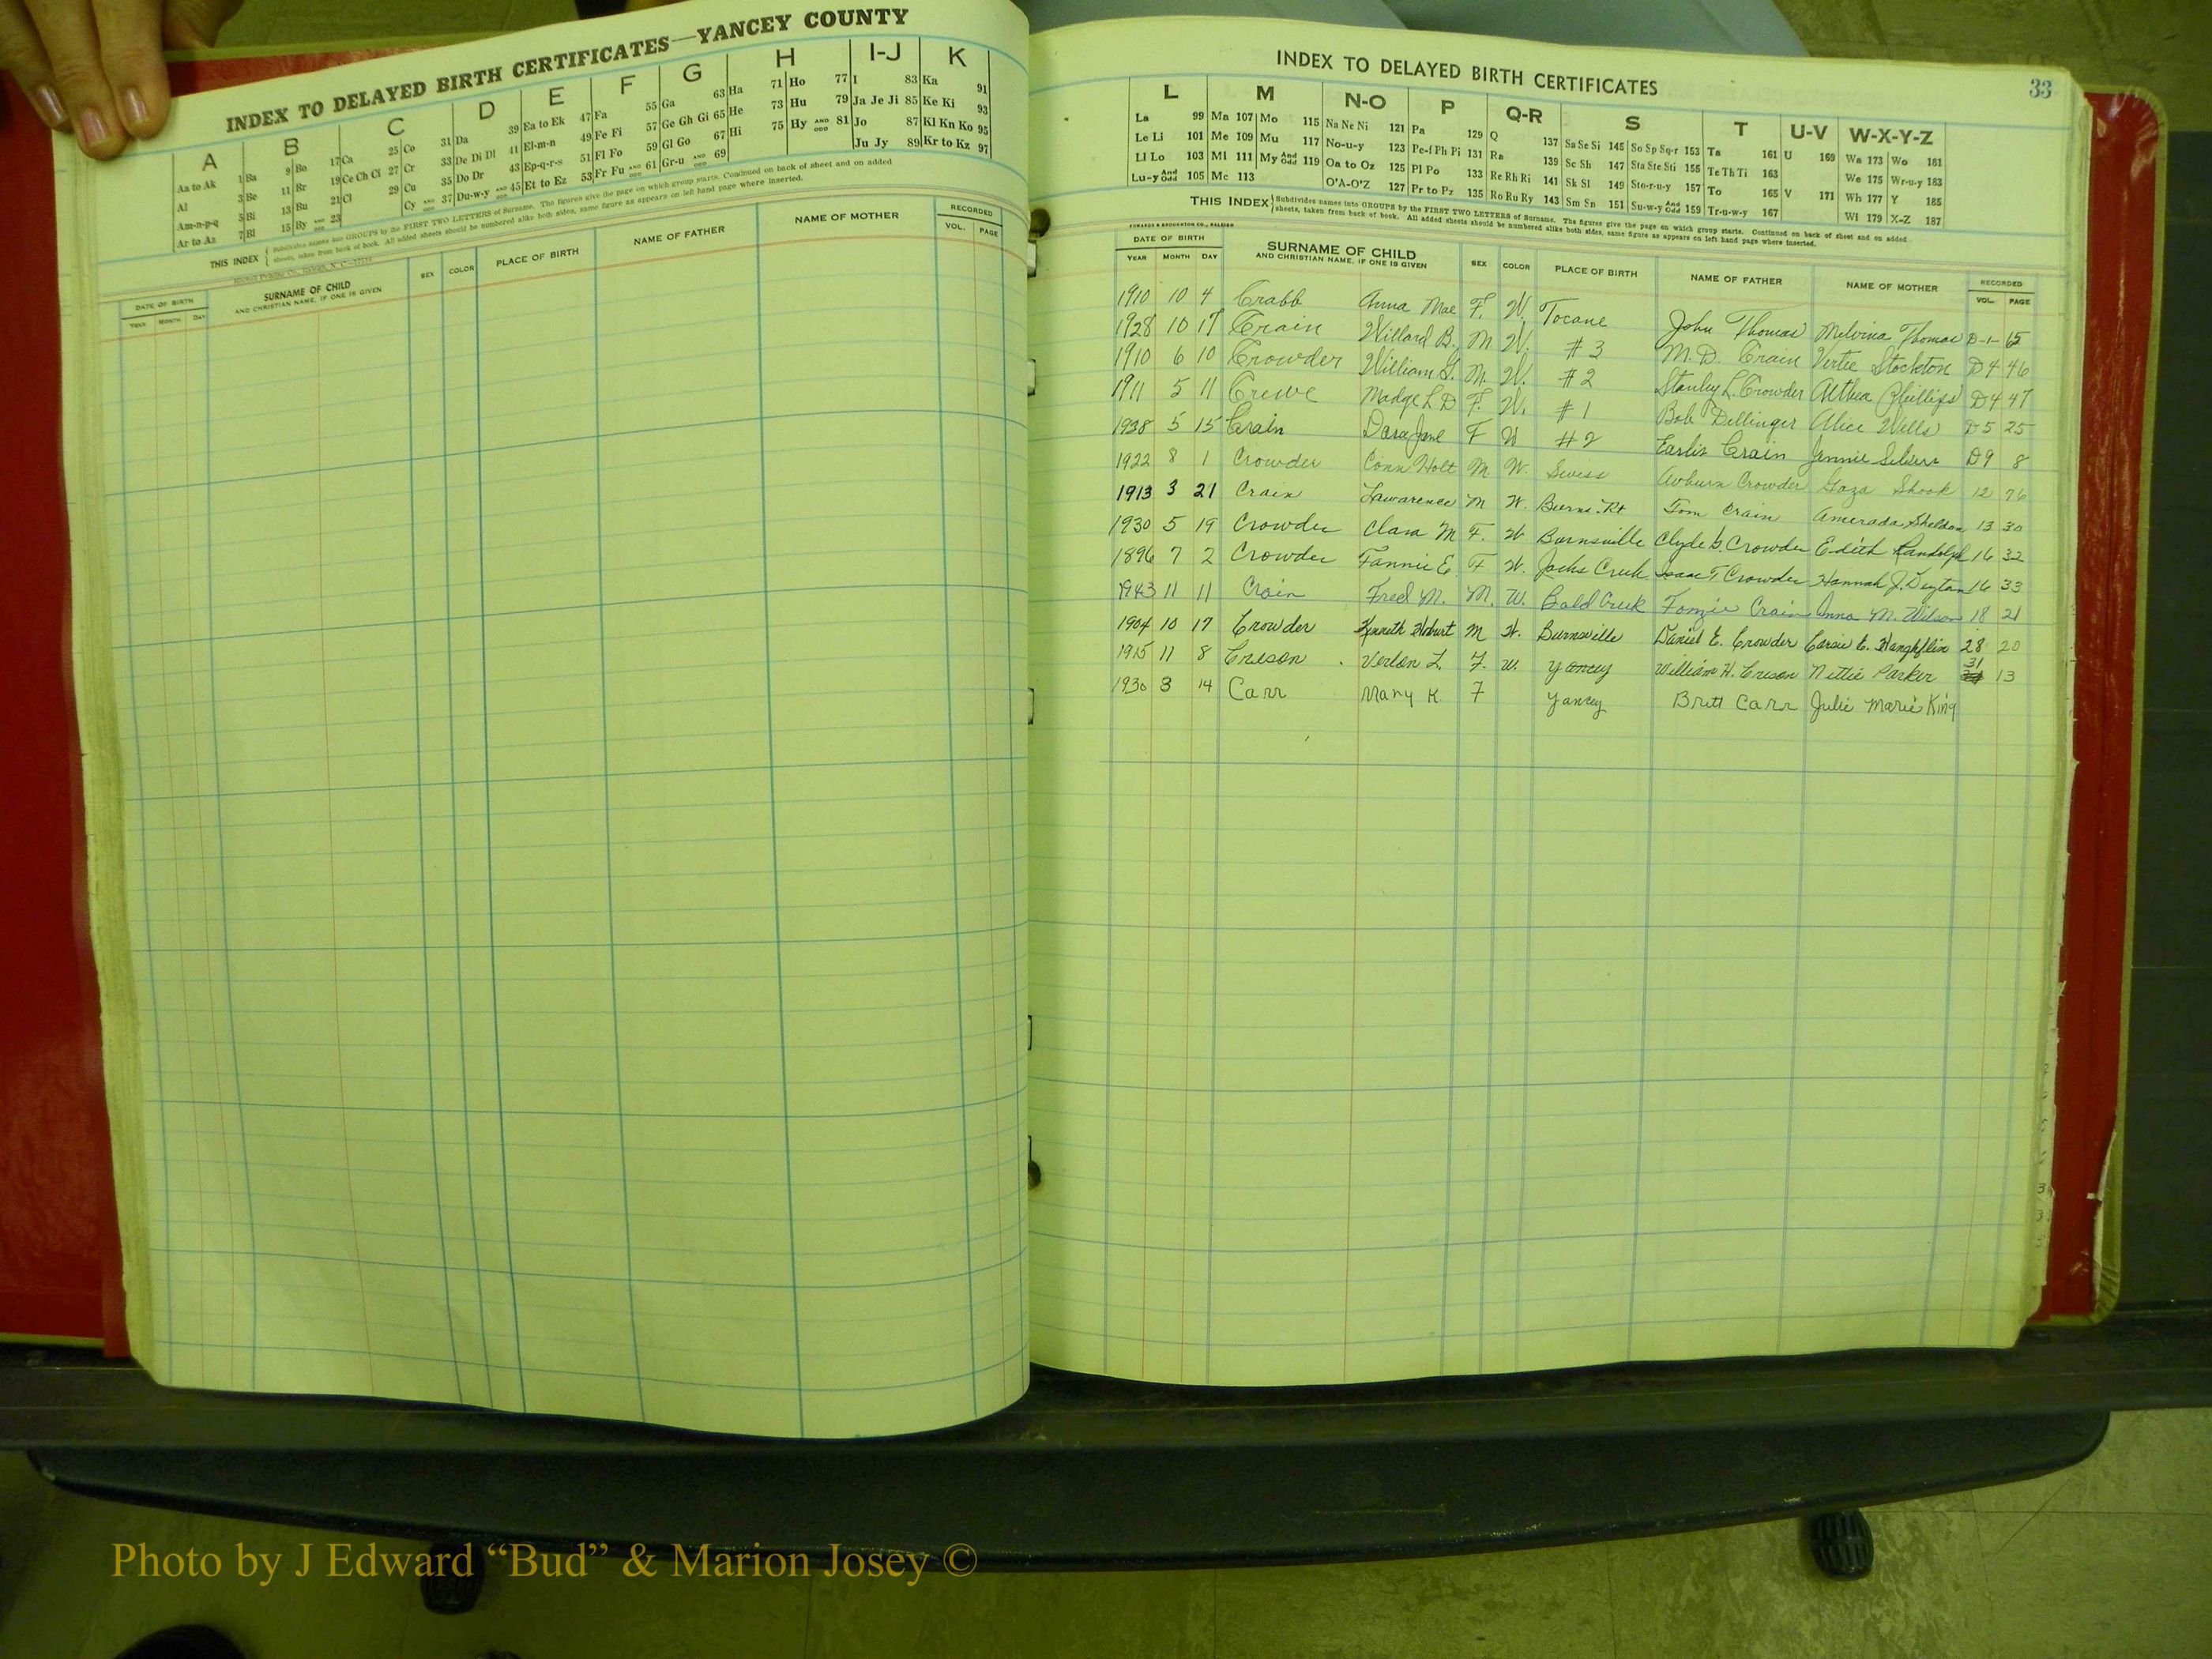 INDEX TO DELAYED BIRTH CERTIFICATES—YANCEY COUNTY
A B C D E F G H I-J K
Aa to Ak 1 Ba 9 Bo 17 Ca 25 Co 31 Da 39 Ea to Ek 47 Fa 55 Ga 63 Ha 71 Ho 77 I 83 Ka 91
Al 3 Be 11 Br 19 Ce Ch Ci 27 Cr 33 De Di Dl 41 El-m-n 49 Fe Fi 57 Ge Gh Gi 65 He 73 Hu 79 Ja Je Ji 85 Ke Ki 93
Am-n-p-q 5 Bi 13 Bu 21 Cl 29 Cu 35 Do Dr 43 Ep-q-r-s 51 Fl Fo 59 Gl Go 67 Hi 75 Hy AND ODD 81 Jo 87 Kl Kn Ko 95
Ar to Az 7 Bl 15 By AND ODD 23 Cy AND ODD 37 Du-w-y AND ODD 45 Et to Ez 53 Fr Fu AND ODD 61 Gr-u AND ODD 69 Ju Jy 89 Kr to Kz 97
THIS INDEX { Subdivides names into GROUPS by the FIRST TWO LETTERS of Surname. The figures give the page on which group starts. Continued on back of sheet and on added
sheets, taken from back of book. All added sheets should be numbered alike both sides, same figure as appears on left hand page where inserted.
DATE OF BIRTH SURNAME OF CHILD SEX COLOR PLACE OF BIRTH NAME OF FATHER NAME OF MOTHER RECORDED
YEAR MONTH DAY AND CHRISTIAN NAME, IF ONE IS GIVEN VOL. PAGE
INDEX TO DELAYED BIRTH CERTIFICATES 33
L M N-O P Q-R S T U-V W-X-Y-Z
La 99 Ma 107 Mo 115 Na Ne Ni 121 Pa 129 Q 137 Sa Se Si 145 So Sp Sq-r 153 Ta 161 U 169 Wa 173 Wo 181
Le Li 101 Me 109 Mu 117 No-u-y 123 Pe-f Ph Pi 131 Ra 139 Sc Sh 147 Sta Ste Sti 155 Te Th Ti 163 We 175 Wr-u-y 183
Ll Lo 103 Mi 111 My And Odd 119 Oa to Oz 125 Pl Po 133 Re Rh Ri 141 Sk Sl 149 Sto-r-u-y 157 To 165 V 171 Wh 177 Y 185
Lu-y And Odd 105 Mc 113 O'A-O'Z 127 Pr to Pz 135 Ro Ru Ry 143 Sm Sn 151 Su-w-y And Odd 159 Tr-u-w-y 167 Wi 179 X-Z 187
THIS INDEX { Subdivides names into GROUPS by the FIRST TWO LETTERS of Surname. The figures give the page on which group starts. Continued on back of sheet and on added
sheets, taken from back of book. All added sheets should be numbered alike both sides, same figure as appears on left hand page where inserted.
EDWARDS & BROUGHTON CO., RALEIGH
DATE OF BIRTH SURNAME OF CHILD SEX COLOR PLACE OF BIRTH NAME OF FATHER NAME OF MOTHER RECORDED
YEAR MONTH DAY AND CHRISTIAN NAME, IF ONE IS GIVEN VOL. PAGE
1910 10 4 Crabb Anna Mae F. W. Tocane John Thomas Melvina Thomas D-1- 65
1928 10 17 Crain Willard B. M W. #3 M. D. Crain Vertie Stockton D4 46
1910 6 10 Crowder William G. M. W. #2 Stanley L. Crowder Althea Phillips D4 47
1911 5 11 Crewe Madge L D F. W. #1 Bob Dellinger Alice Wells D5 25
1938 5 15 Crain Dara Jane F W #2 Crain Jennie D9 8
1922 8 1 Crowder Conn Holt M W. Swiss Auburn Crowder Gaza Shook 12 76
1913 3 21 Crain Lawarence M W. Burns. Rt Tom Crain Sheldon 13 30
1930 5 19 Crowder Clara M F. W Burnsville Clyde G. Crowder Edith Randolph 16 32
1896 7 2 Crowder Fannie E. F W. Jacks Creek Isaac T Crowder Hannah J. Deyton 16 33
1943 11 11 Crain Fred M. M. W. Bald Creek Fonzie Crain Anna M. Wilson 18 21
1904 10 17 Crowder Kenneth Hobert M W. Burnsville Daniel E. Crowder E. 28 20
1915 11 8 Creson Verlon L. F. W. Yancey William H. Creson Nettie Parker 31 13
1930 3 14 Carr Mary K. F Yancey Britt Carr Julie Marie King
Photo by J Edward “Bud” & Marion Josey ©